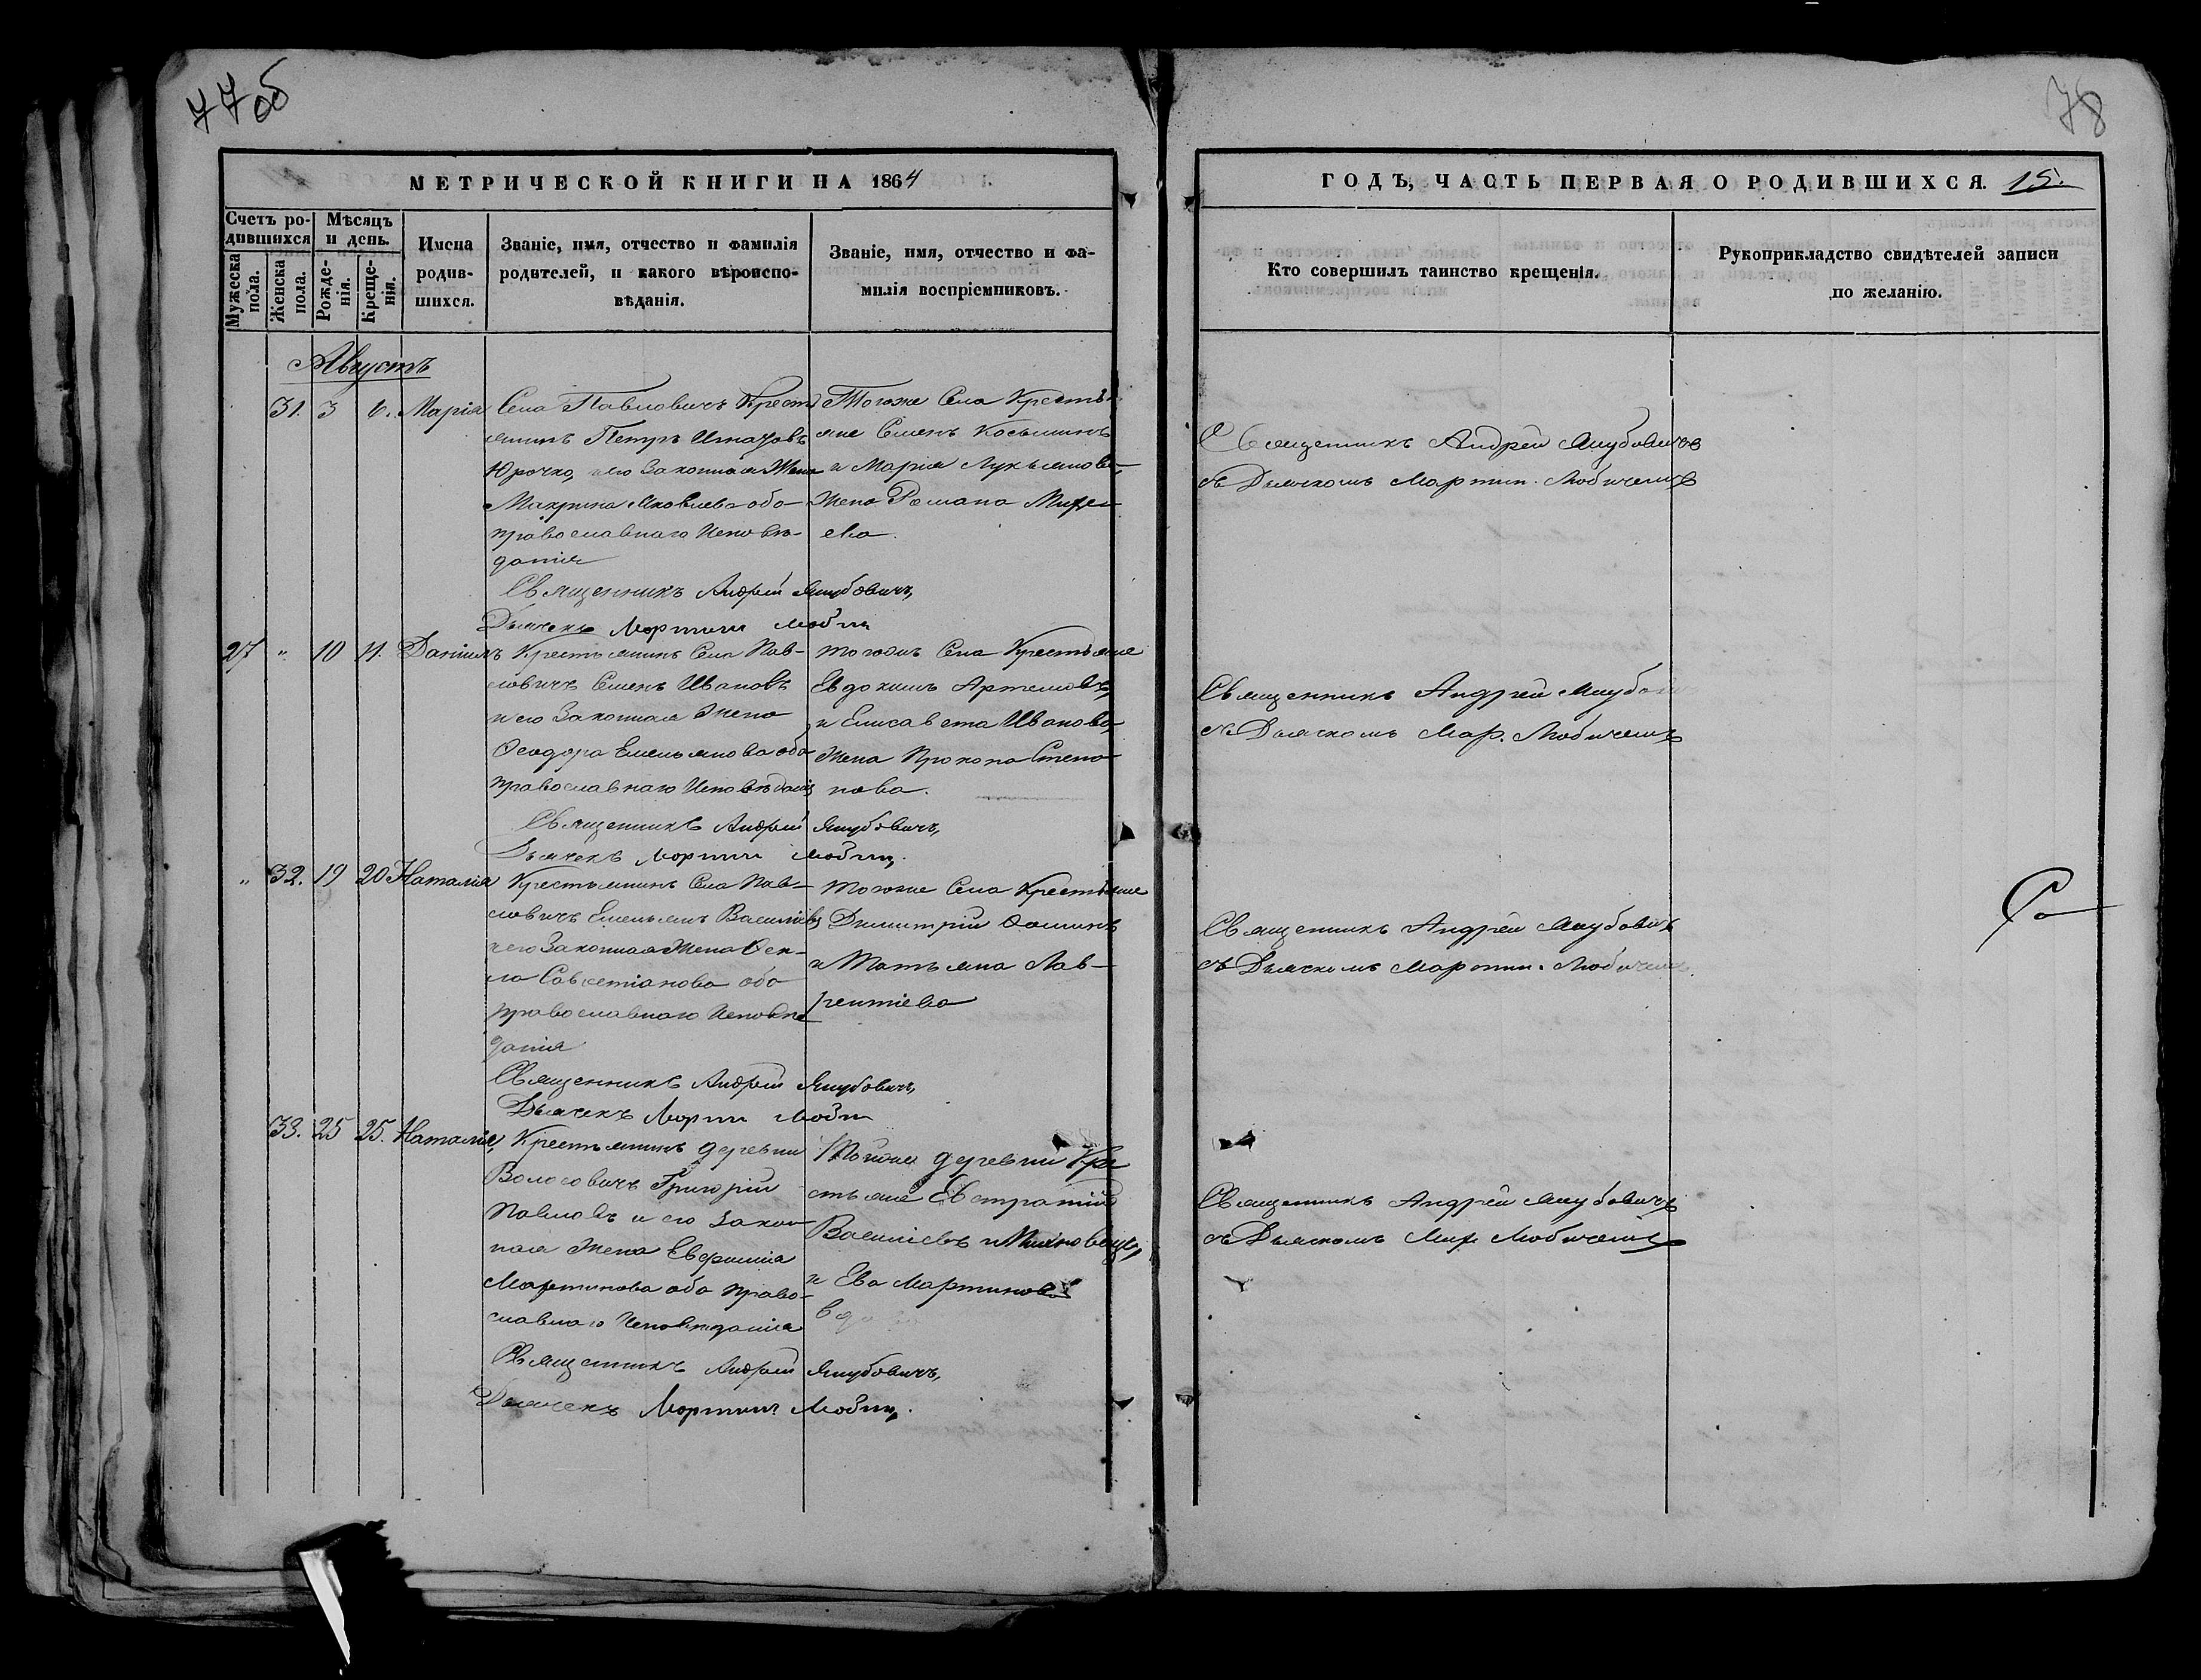 77 об
78
МЕТРИЧЕСКОЙ КНИГИ НА 1864
ГОДЪ, ЧАСТЬ ПЕРВАЯ О РОДИВШИХСЯ. 15.
Счетъ родившихся
Мужеска пола.
Женска пола.
Мѣсяцъ и день.
Рожденія.
Крещенія.
Имена родившихся.
Званіе, имя, отчество и фамилія родителей, и какого вѣроисповѣданія.
Званіе, имя, отчество и фамилія воспріемниковъ.
Кто совершилъ таинство крещенія.
Рукоприкладство свидѣтелей записи по желанію.
Августъ
31. 3 6. Марія
Села Павловичъ Кресть
янинъ Петръ Игнатовъ
Юрочко, и его Законная Жена
Макрина Яковлева оба
православнаго Исповѣ-
данія
Тогоже Села Крестья
яне Семенъ Косьминъ
и Марія Лукьянова,
Жена Романа
Священникъ Андрей Якубовичъ
съ Дьячкомъ Мартин. Любичемъ
Священникъ Андрей Якубовичъ,
Дьячекъ Мартинъ
27 " 10 11. Даніилъ
Крестьянинъ Села Пав-
ловичъ Семенъ Ивановъ
и его Законная Жена
Ѳеодора Емельянова оба
православнаго Исповѣданія
тогожъ Села Крестьяне
Евдокимъ Артемовъ,
и Елисавета Иванова,
Жена Прокопа Степа
нова.
Священникъ Андрей
съ Дьячкомъ Мар. Любичемъ
Священникъ Андрей Якубовичъ,
Дьячекъ Мартинъ
" 32. 19 20 Наталія
Крестьянинъ Села Пав-
ловичъ Емельянъ Васильевъ
и его Законная Жена Ѳек-
ла Савостіанова оба
православнаго Исповѣ
данія
тогоже Села Крестьяне
Димитрій Ѳоминъ
и Татьяна Лав-
рентіева
Священникъ Андрей Якубовичъ
съ Дьячкомъ Мартин. Любичемъ.
Священникъ Андрей Якубовичъ,
Дьячекъ Мартинъ
33. 25 25. Наталія,
Крестьянинъ деревни
Волосовичъ Григорій
Павловъ и его Закон
ная Жена Евфимія
Мартинова оба право-
славнаго Исповѣданія
Тойже деревни Кре
стьяне Евстратій
Васильевъ
и Ева Мартинова
Священникъ Андрей Якубовичъ
съ Дьячкомъ Мар. Любичемъ
Священникъ Андрей Якубовичъ,
Дьячекъ Мартинъ